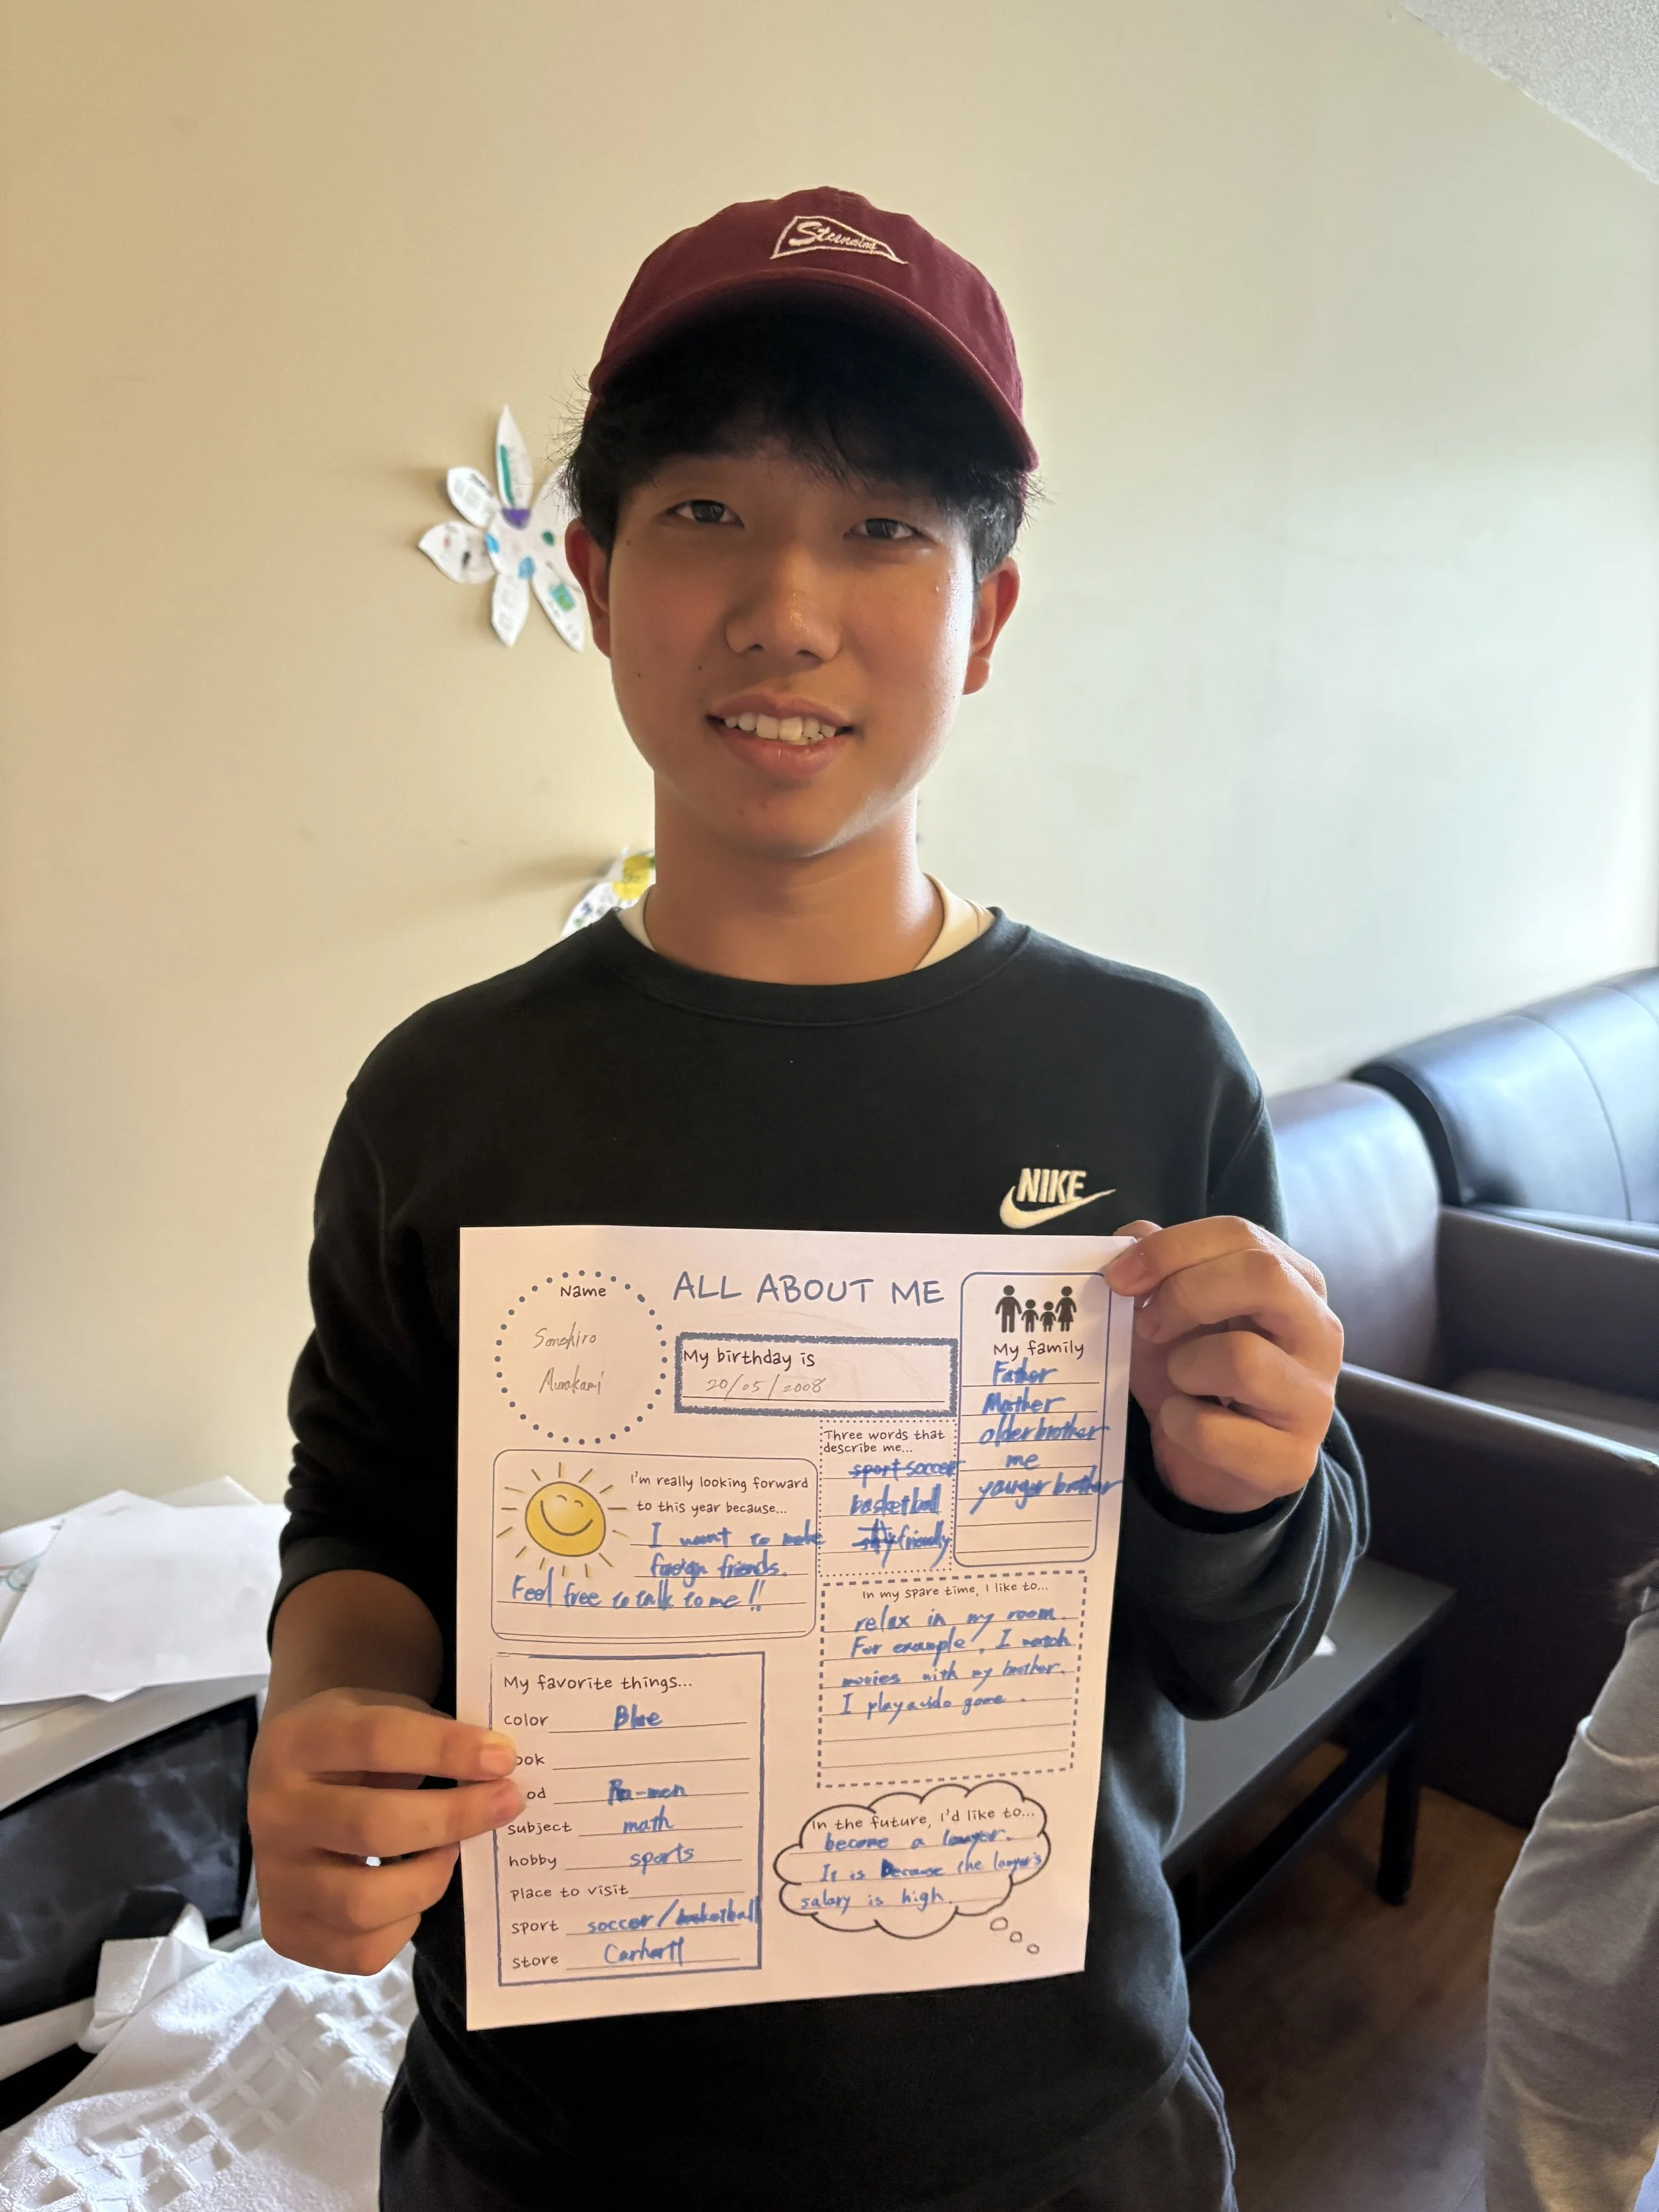 Stunning
NIKE
ALL ABOUT ME
Name
Murakami
My birthday is
20/05/2008
My family
Father
Mother
older brother
me
younger brother
Three words that
describe me...
sport soccer
basketball
friendly
I'm really looking forward
to this year because...
I want to make
foreign friends.
Feel free to talk to me!!
In my spare time, I like to...
relax in my room.
For example, I watch
movies with my brother.
I play a video game.
My favorite things...
color Blue
ook
od Ra-men
subject math
hobby sports
place to visit
sport soccer/basketball
store Carhartt
In the future, I'd like to...
become a lawyer.
It is because the lawyer's
salary is high.